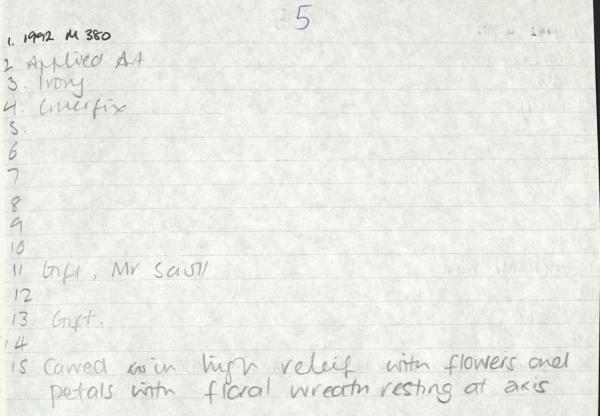 5
1. 1992 M 380
2 Applied Art
3. Ivory
4. Crucifix
5.
6
7
8
9
10
11 Gift, Mr Saull
12
13. Gift.
14
15 Carved in high releif with flowers and
petals with floral wreath resting at axis